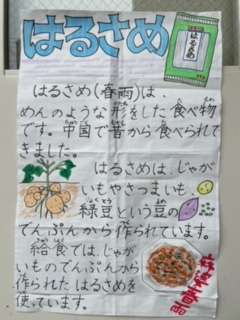 はるさめ
はるさめ
はるさめ(春雨)は、
めんのような形をした食べ物
です。中国で昔から食べられて
きました。
はるさめは、じゃが
いもやさつまいも、
緑豆という豆の
でんぷんから作られています。
給食では、じゃが
いものでんぷんから
作られたはるさめを
使っています。